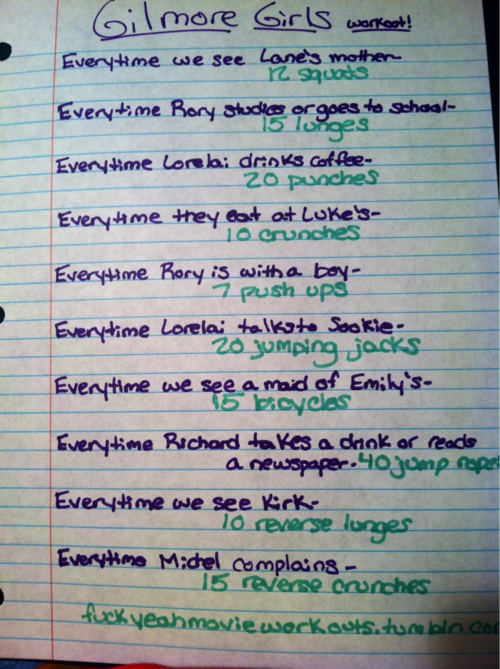 Gilmore Girls workout!
Everytime we see Lane's mother-
12 squats
Everytime Rory studies or goes to school-
15 lunges
Everytime Lorelai drinks coffee-
20 punches
Everytime they eat at Luke's-
10 crunches
Everytime Rory is with a boy-
7 push ups
Everytime Lorelai talks to Sookie-
20 jumping jacks
Everytime we see a maid of Emily's-
15 bicycles
Everytime Richard takes a drink or reads
a newspaper. 40 jump rope
Everytime we see Kirk-
10 reverse lunges
Everytime Michel complains-
15 reverse crunches
fuckyeahmovieworkouts.tumblr.co